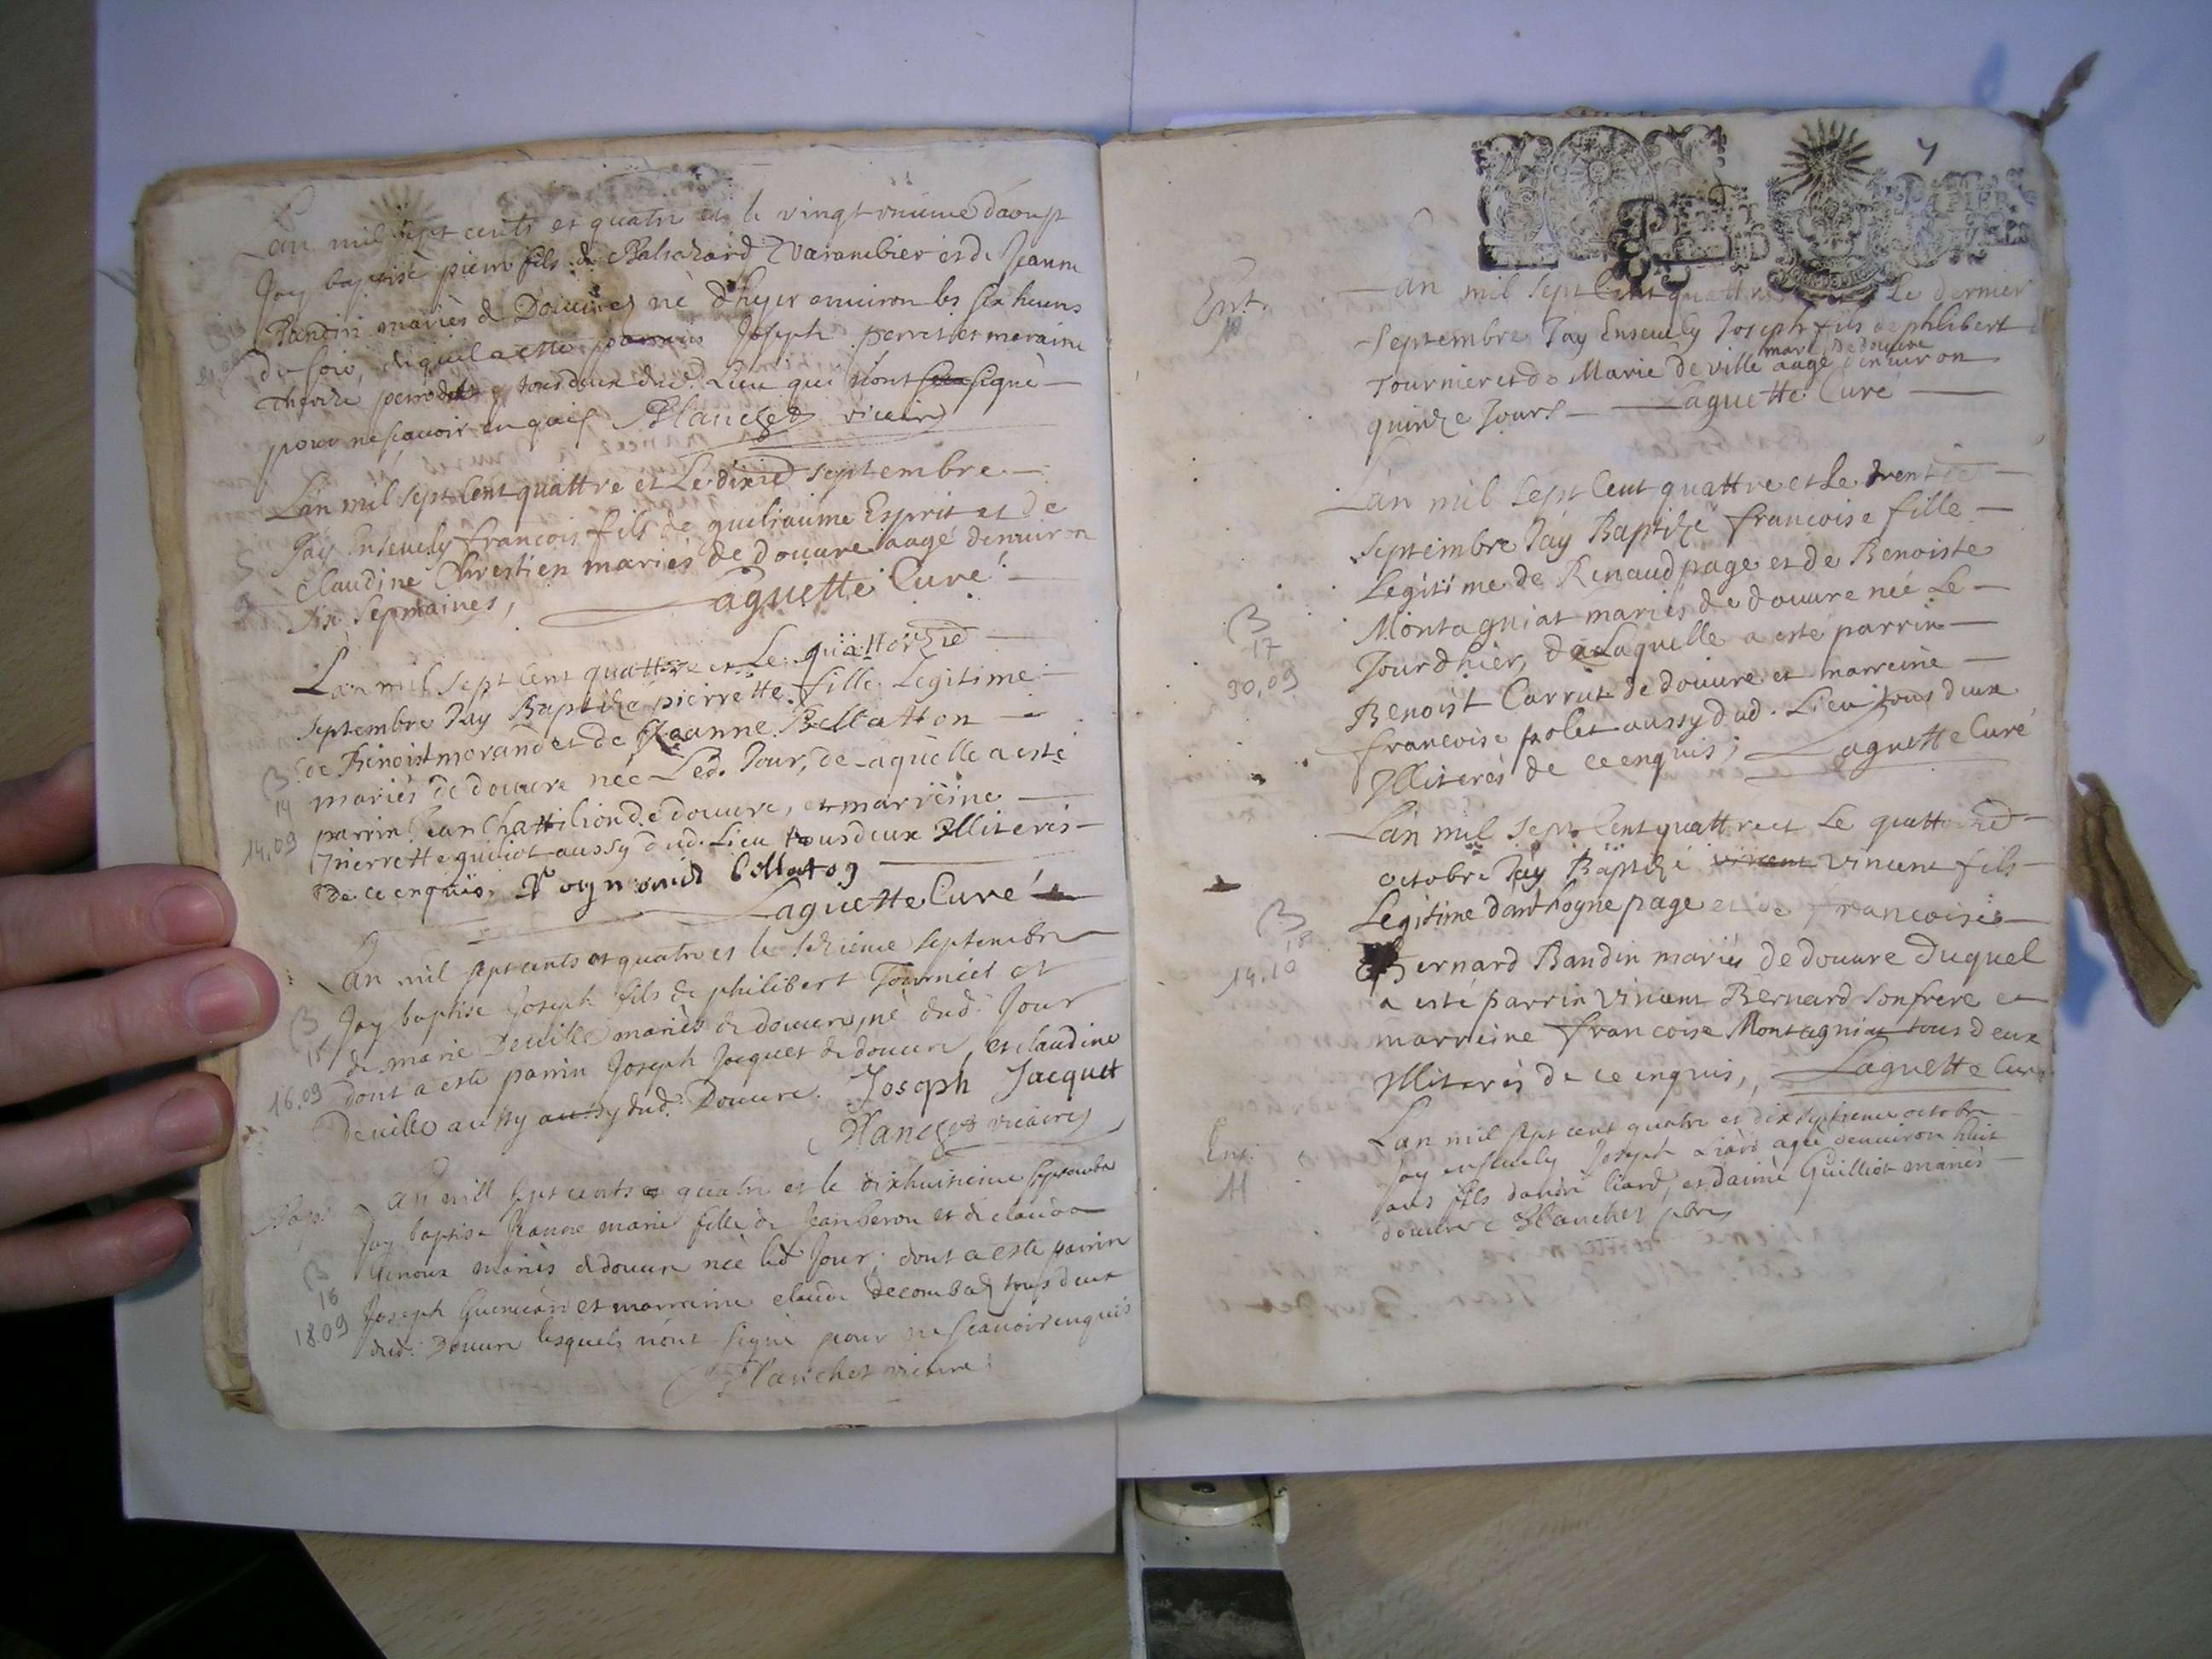 Lan mil sept cents et quatre et le vingt unieme daoust
Jay baptisé pierre fils de Balthazard Varambier et de Jeanne
Bandin mariès de Douvres né d'hyer environ les six heures
du soir, duquel a esté parrain Joseph perret et maraine
tous deux dud. Lieu qui n'ont signé
pour ne scavoir enquis Blanchet vicaire
Lan mil sept Cent quattre et Le dixie septembre
Jay Enseuely francois fils de guiliaume Esprit et de
Claudine Chrestien mariés de douure aagé denuiron
six sepmaines, Laguette Curé
Lan mil sept Cent quattre et Le quattorzie
septembre Jay Baptizé pierrette fille Legitime
de Benoist morand et de Jeanne Bellatton
mariés de douure née Led. Jour, de laquelle a esté
parrin Jean Chattillion de douure, et marreine
pierrette guiliot aussy dud. Lieu tous deux Illiterés
de ce enquis,
Laguette Curé
B
14
14.09
Lan mil sept cents et quatre et le seizieme septembre
Jay baptisé Joseph fils de philibert Tournier et
de marie Deuille mariés de douure, né dud. Jour
dont a esté parrin Joseph Jacquet de douure, et claudine
Deuille aussy aussy dud. Douure. Joseph Jacquet
Blanchet vicaire
B
15
16.09
Lan mill sept cents quatre et le dixhuitieme septembre
Jay baptisé Jeanne marie fille de Jean beron et de clauda
mariés de douure née led Jour; dont a esté parrin
Joseph et marraine clauda Decombaz tous deux
dud. Douure lesquels n'ont signé pour ne scauoir enquis
Blanchet vicaire
Bap.
B
16
18.09
7
Lan mil sept Cent quattre et Le dernier
septembre Jay Enseuely Joseph fils de philibert
Tournier et de Marie deville mariés de douure aagé denuiron
quinze Jours Laguette Curé
Ent.
10
Lan mil sept Cent quattre et Le trentie
septembre Jay Baptizé francoise fille
Legitime de Renaud page et de Benoiste
Montagniat mariés de douure née Le
Jour dhier, de Laquelle a esté parrin
Benoist Carrut de douure et marreine
francoise polet aussy dud. Lieu tous deux
Illiterés de ce enquis; Laguette Curé
B
17
30.09
Lan mil sept Cent quattre et Le quattorzie
octobre Jay Baptizé vincent vincent fils
Legitime danthoyne page et de francoise
Bernard Bandin mariés de douure duquel
a esté parrin vincent Bernard son frere et
marreine francoise Montagniat tous deux
Illiterés de ce enquis, Laguette Curé
B
18
14.10
Lan mil sept cent quatre et dix septieme octobre
Jay enseuely Joseph Liard agé denuiron huit
ans fils dandré liard, et daimé Guilliot mariés
douure Blanchet pbre
Ent.
11